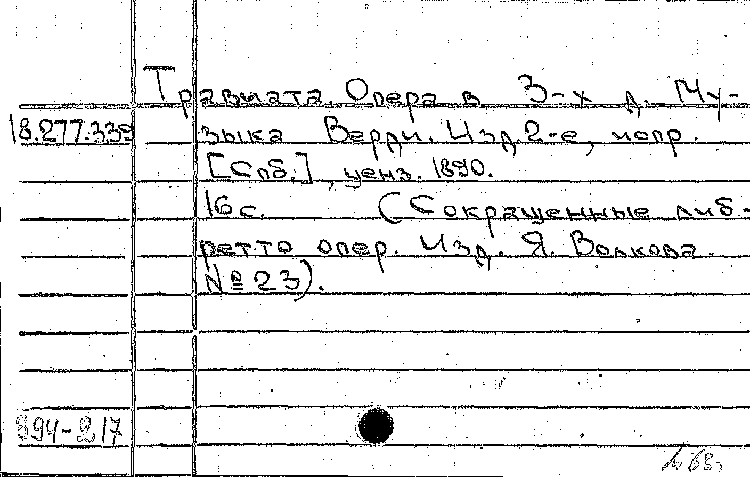 Травиата. Опера в 3-х д. Му-
18.277.339 зыка Верди. Изд. 2-е, испр.
[Спб.], ценз. 1890.
16 с. (Сокращенные либ-
ретто опер. Изд. Я. Волкова.
№ 23).
394-217